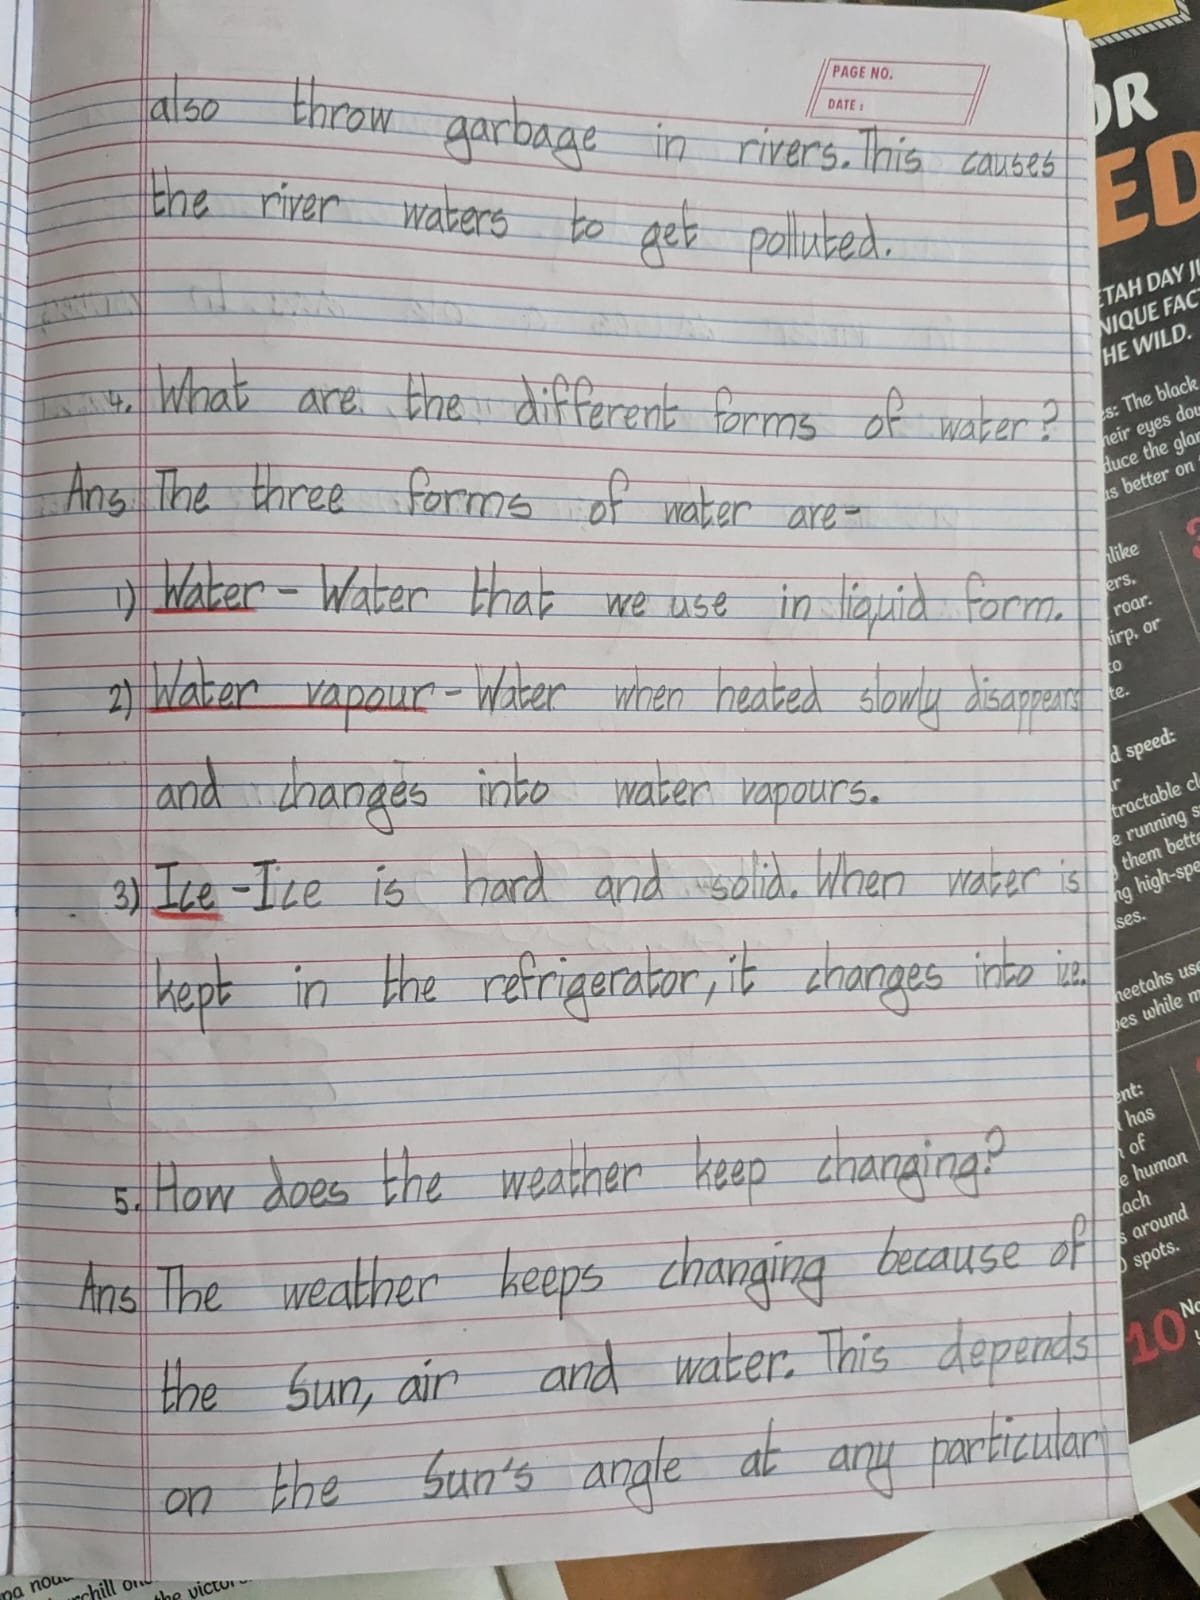 PAGE NO.
DATE :
also throw garbage in rivers. This causes
the river waters to get polluted.
4. What are the different forms of water?
Ans The three forms of water are-
1) Water - Water that we use in liquid form.
2) Water vapour - Water when heated slowly disappears
and changes into water vapours.
3) Ice - Ice is hard and solid. When water is
kept in the refrigerator, it changes into ice.
5. How does the weather keep changing?
Ans The weather keeps changing because of
the Sun, air and water. This depends
on the Sun's angle at any particular
OR
ED
ETAH DAY
NIQUE FAC
HE WILD.
s: The black
heir eyes dou
duce the glar
s better on
like
ers.
roar.
irp, or
to
te.
d speed:
r
tractable cl
e running s
them bette
ng high-spe
ses.
heetahs use
es while m
nt:
has
of
e human
ach
s around
spots.
10 No
chill on
the victor